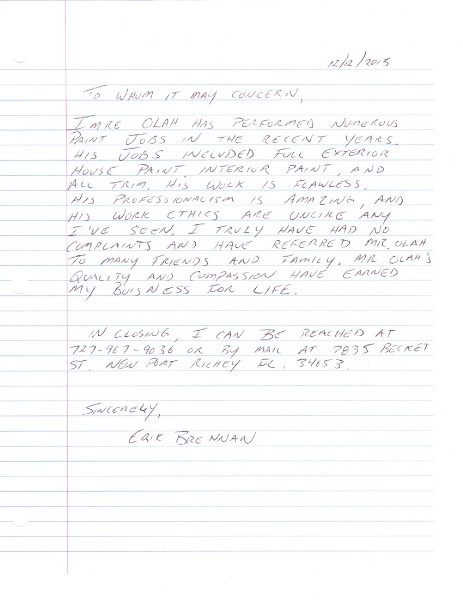 12/12/2015
TO WHOM IT MAY CONCERN,
IMRE OLAH HAS PERFORMED NUMEROUS
PAINT JOBS IN THE RECENT YEARS.
HIS JOBS INCLUDED FULL EXTERIOR
HOUSE PAINT, INTERIOR PAINT, AND
ALL TRIM. HIS WORK IS FLAWLESS.
HIS PROFESSIONALISM IS AMAZING, AND
HIS WORK ETHICS ARE UNLIKE ANY
I'VE SEEN. I TRULY HAVE HAD NO
COMPLAINTS AND HAVE REFERRED MR. OLAH
TO MANY FRIENDS AND FAMILY. MR. OLAH'S
QUALITY AND COMPASSION HAVE EARNED
MY BUISNESS FOR LIFE.
IN CLOSING, I CAN BE REACHED AT
727-967-9036 OR BY MAIL AT 7835 BECKET
ST. NEW PORT RICHEY FL. 34653.
SINCERELY,
ERIK BRENNAN